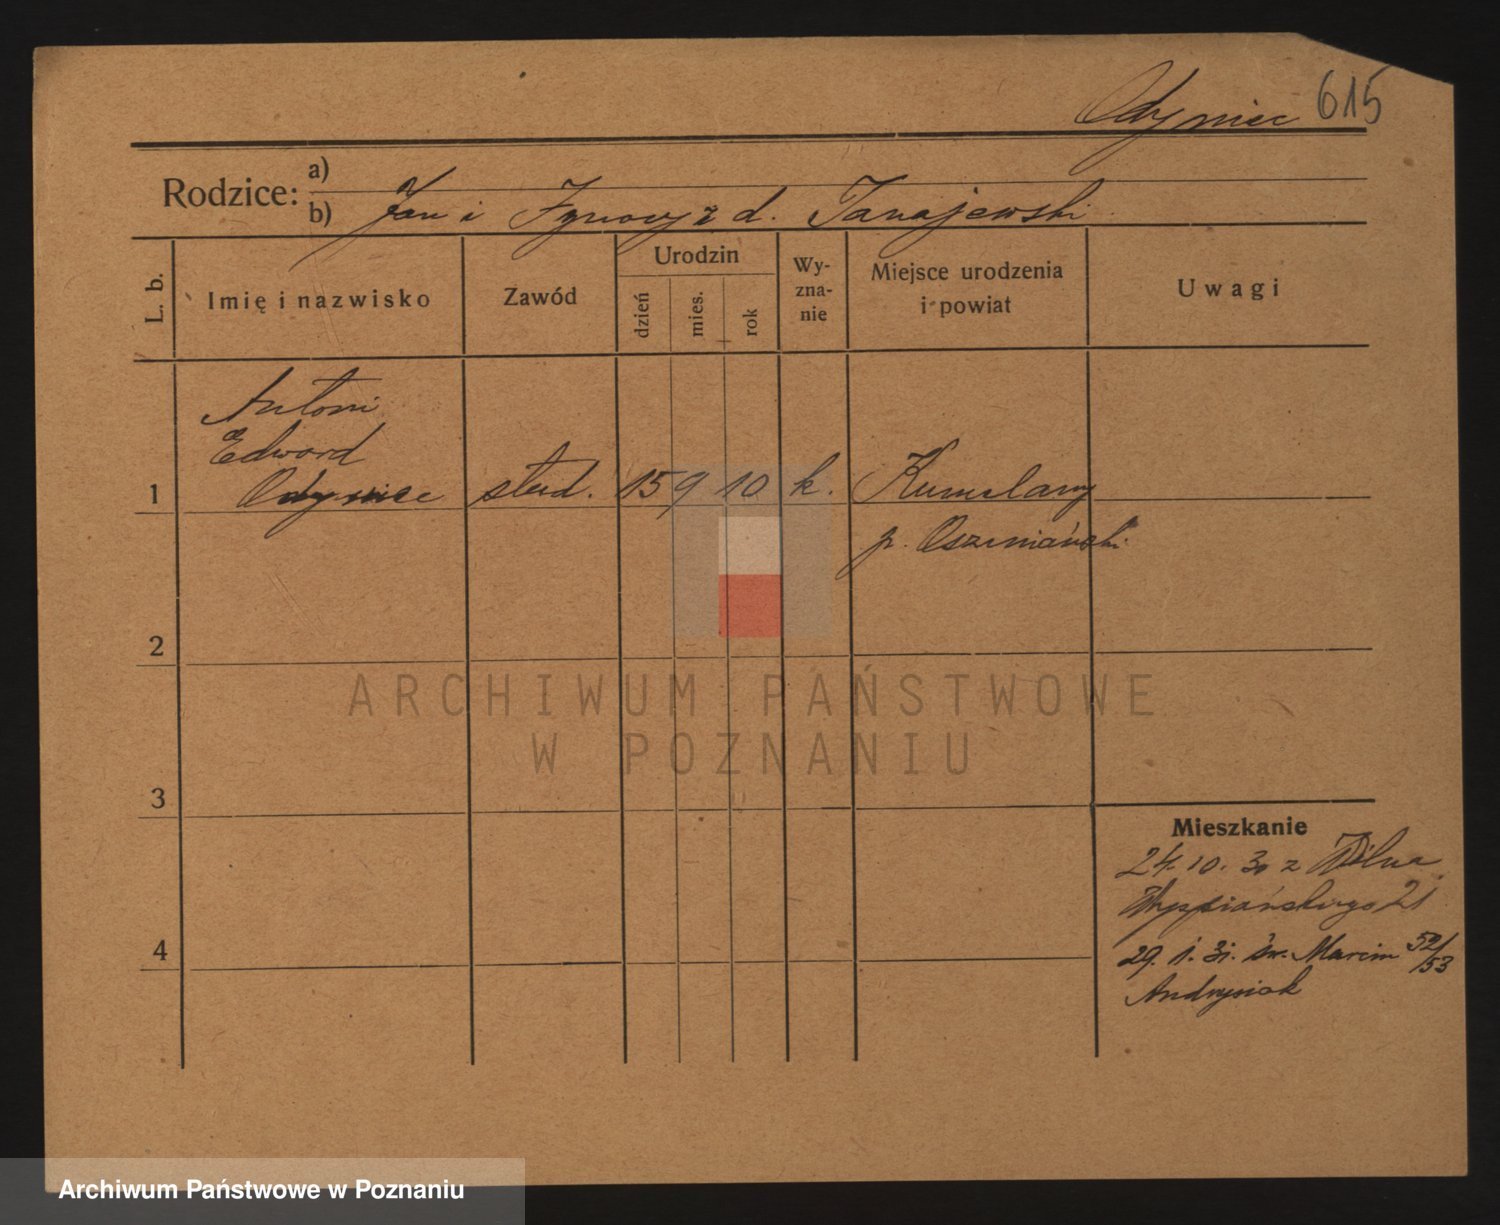 Odyniec 615
Rodzice:
a)
b) Jan i z d. Tanajewski
L. b.
Imię i nazwisko
Zawód
Urodzin
dzień
mies.
rok
Wy-
zna-
nie
Miejsce urodzenia
i powiat
Uwagi
Antoni
Edward
1 Odyniec stud. 15 9 10 k. Kumelany
p. Oszmiański
2
ARCHIWUM PAŃSTWOWE
W POZNANIU
3
Mieszkanie
24. 10. 30 z Wilna
Wyspiańskiego 21
4
29. 1. 31. św. Marcin 52/53
Andrysiak
Archiwum Państwowe w Poznaniu